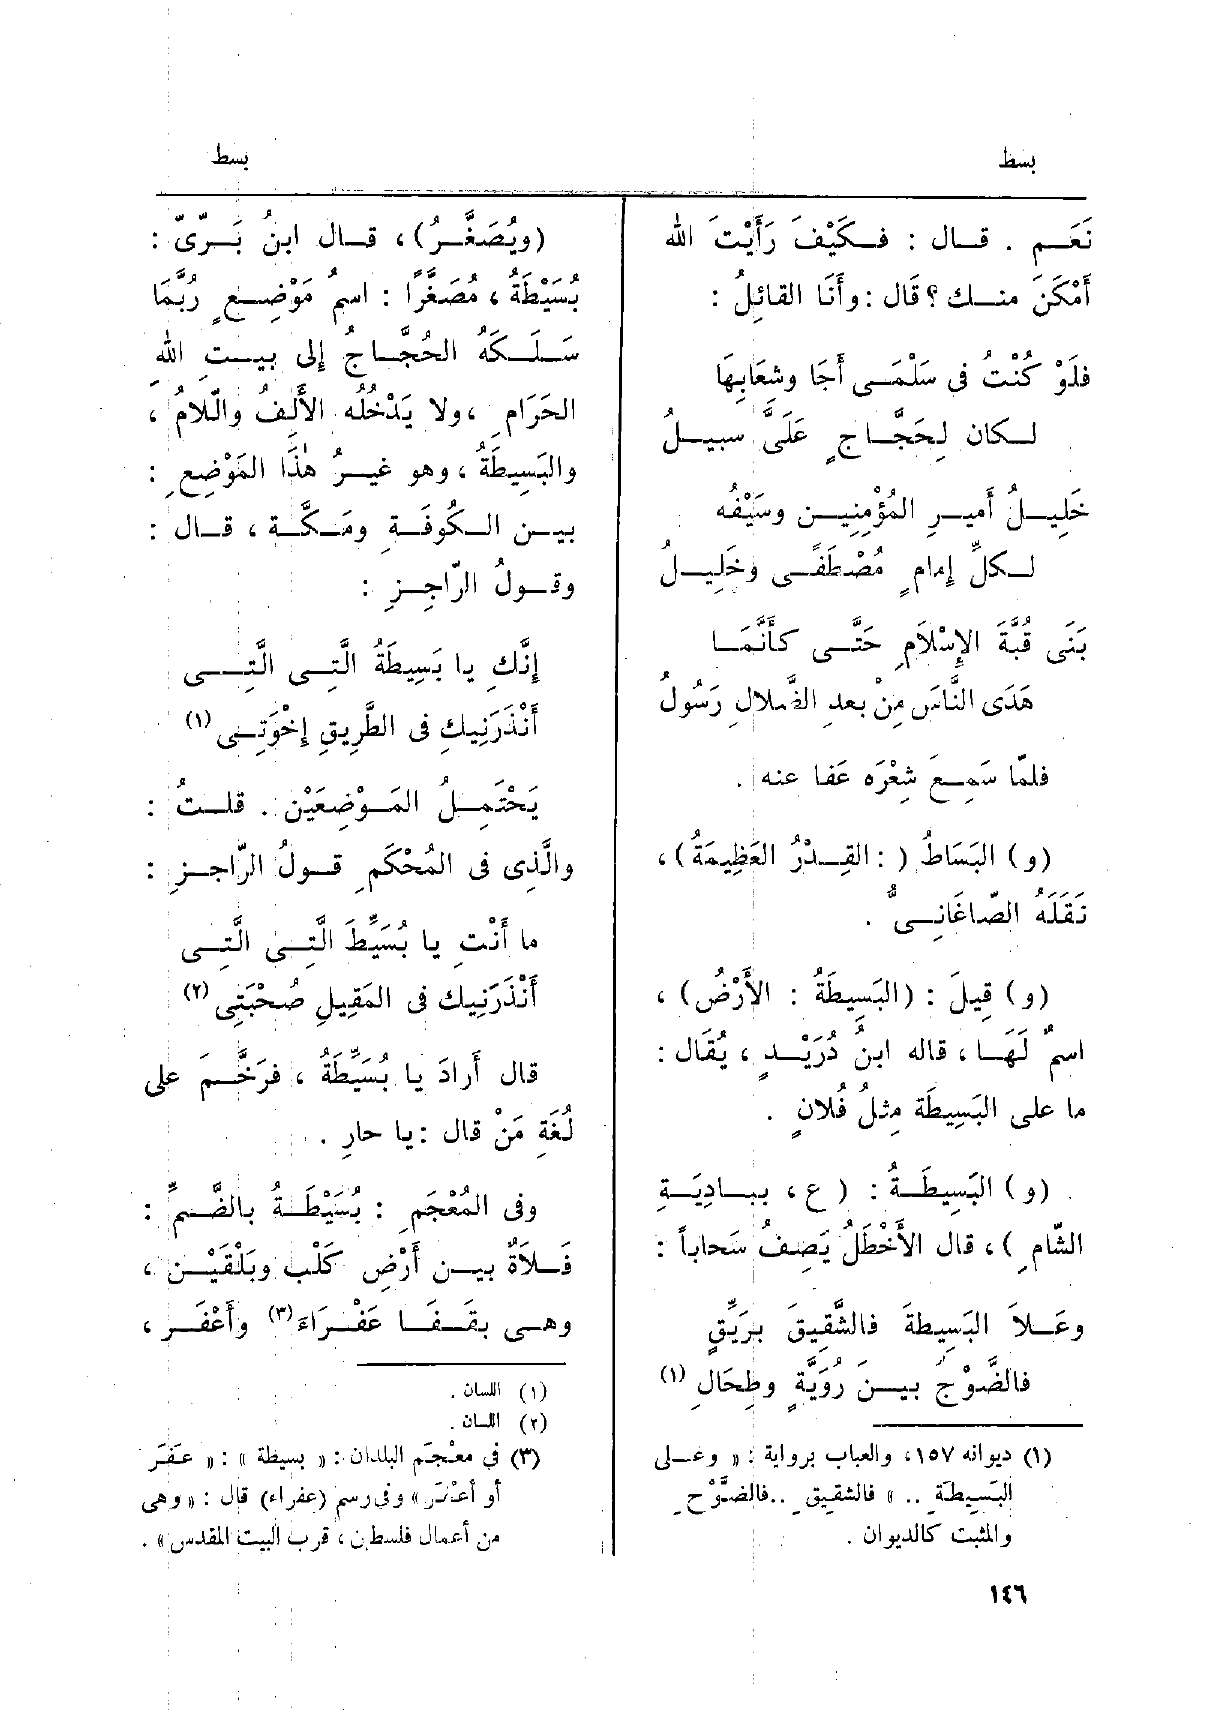 بسط
بسط
نَعَم . قال : فكَيْفَ رَأَيْتَ اللّٰهَ
أَمْكَنَ منك ؟ قال : وأَنَا القائِلُ :
فلَوْ كُنْتُ فى سَلْمَى أَجَا وشِعَابِهَا
لكان لِحَجَّاجٍ عَلَىَّ سبيلُ
خَلِيلُ أَمِيرِ المُؤْمِنِين وسَيْفُه
لكلِّ إمامٍ مُصْطَفًى وخَلِيلُ
بَنَى قُبَّةَ الإِسْلَامِ حَتَّى كأَنَّمَا
هَدَى النّاسَ مِنْ بعدِ الضَّلالِ رَسُولُ
فلمّا سَمِعَ شِعْرَه عَفا عنه .
(و) البَسَاطُ ( : القِدْرُ العَظِيمَةُ) ،
نَقَلَهُ الصّاغَانِىُّ .
(و) قِيلَ : (البَسِيطَةُ : الأَرْضُ) ،
اسمٌ لَهَا ، قاله ابنُ دُرَيْدٍ ، يُقَال :
ما على البَسِيطَةِ مِثلُ فُلانٍ .
(و) البَسِيطَةُ : ( ع ، ببادِيَةِ
الشّامِ ) ، قال الأَخْطَلُ يَصِفُ سَحاباً :
وعَلاَ البَسِيطةَ فالشَّقِيقَ بِرَيِّقٍ
فالضَّوْجَ بينَ رُوَيَّةٍ وطِحَالِ (١)
(١) ديوانه ١٥٧ ، والعباب برواية : « وعلى
البَسِيطَةِ .. » فالشقيقِ .. فالضَّوْجِ
والمثبت كالديوان .
(ويُصَغَّرُ) ، قال ابنُ بَرِّىّ :
بُسَيْطَةُ ، مُصَغَّرًا : اسمُ مَوْضِعٍ رُبَّمَا
سَلَكَهُ الحُجَّاجُ إلى بيتِ اللّٰهِ
الحَرَامِ ، ولا يَدْخُلُه الأَلِفُ والّلامُ ،
والبَسِيطَةُ ، وهو غيرُ هٰذا المَوْضِعِ :
بين الكُوفَةِ ومَكَّة ، قال :
وقولُ الرّاجِزِ :
إنَّكِ يا بَسِيطَةُ الَّتِى الَّتِى
أَنْذَرَنِيكِ فى الطَّرِيقِ إخْوَتِى (١)
يَحْتَمِلُ المَوْضِعَيْن . قلتُ :
والَّذِى فى المُحْكَمِ قولُ الرّاجِزِ :
ما أَنْتِ يا بُسَيِّطَ الَّتِى الَّتِى
أَنْذَرَنِيك فى المَقِيلِ صُحْبَتِى (٢)
قال أَرادَ يا بُسَيِّطَةُ ، فرَخَّمَ على
لُغَةِ مَنْ قال : يا حارِ .
وفى المُعْجَمِ : بُسَيْطَةُ بالضَّمِّ :
فَلاَةٌ بين أَرْضِ كَلْب وبَلْقَيْن ،
وهى بقَفَا عَفْرَاءَ (٣) وأَعْفَر ،
(١) اللسان .
(٢) اللسان .
(٣) في معْجَم البلدان : « بسيطة » : « عَفَر
أو أعْفَر » وفى رسم (عفراء) قال : « وهى
من أعمال فلسطين ، قرب البيت المقدس » .
١٤٦